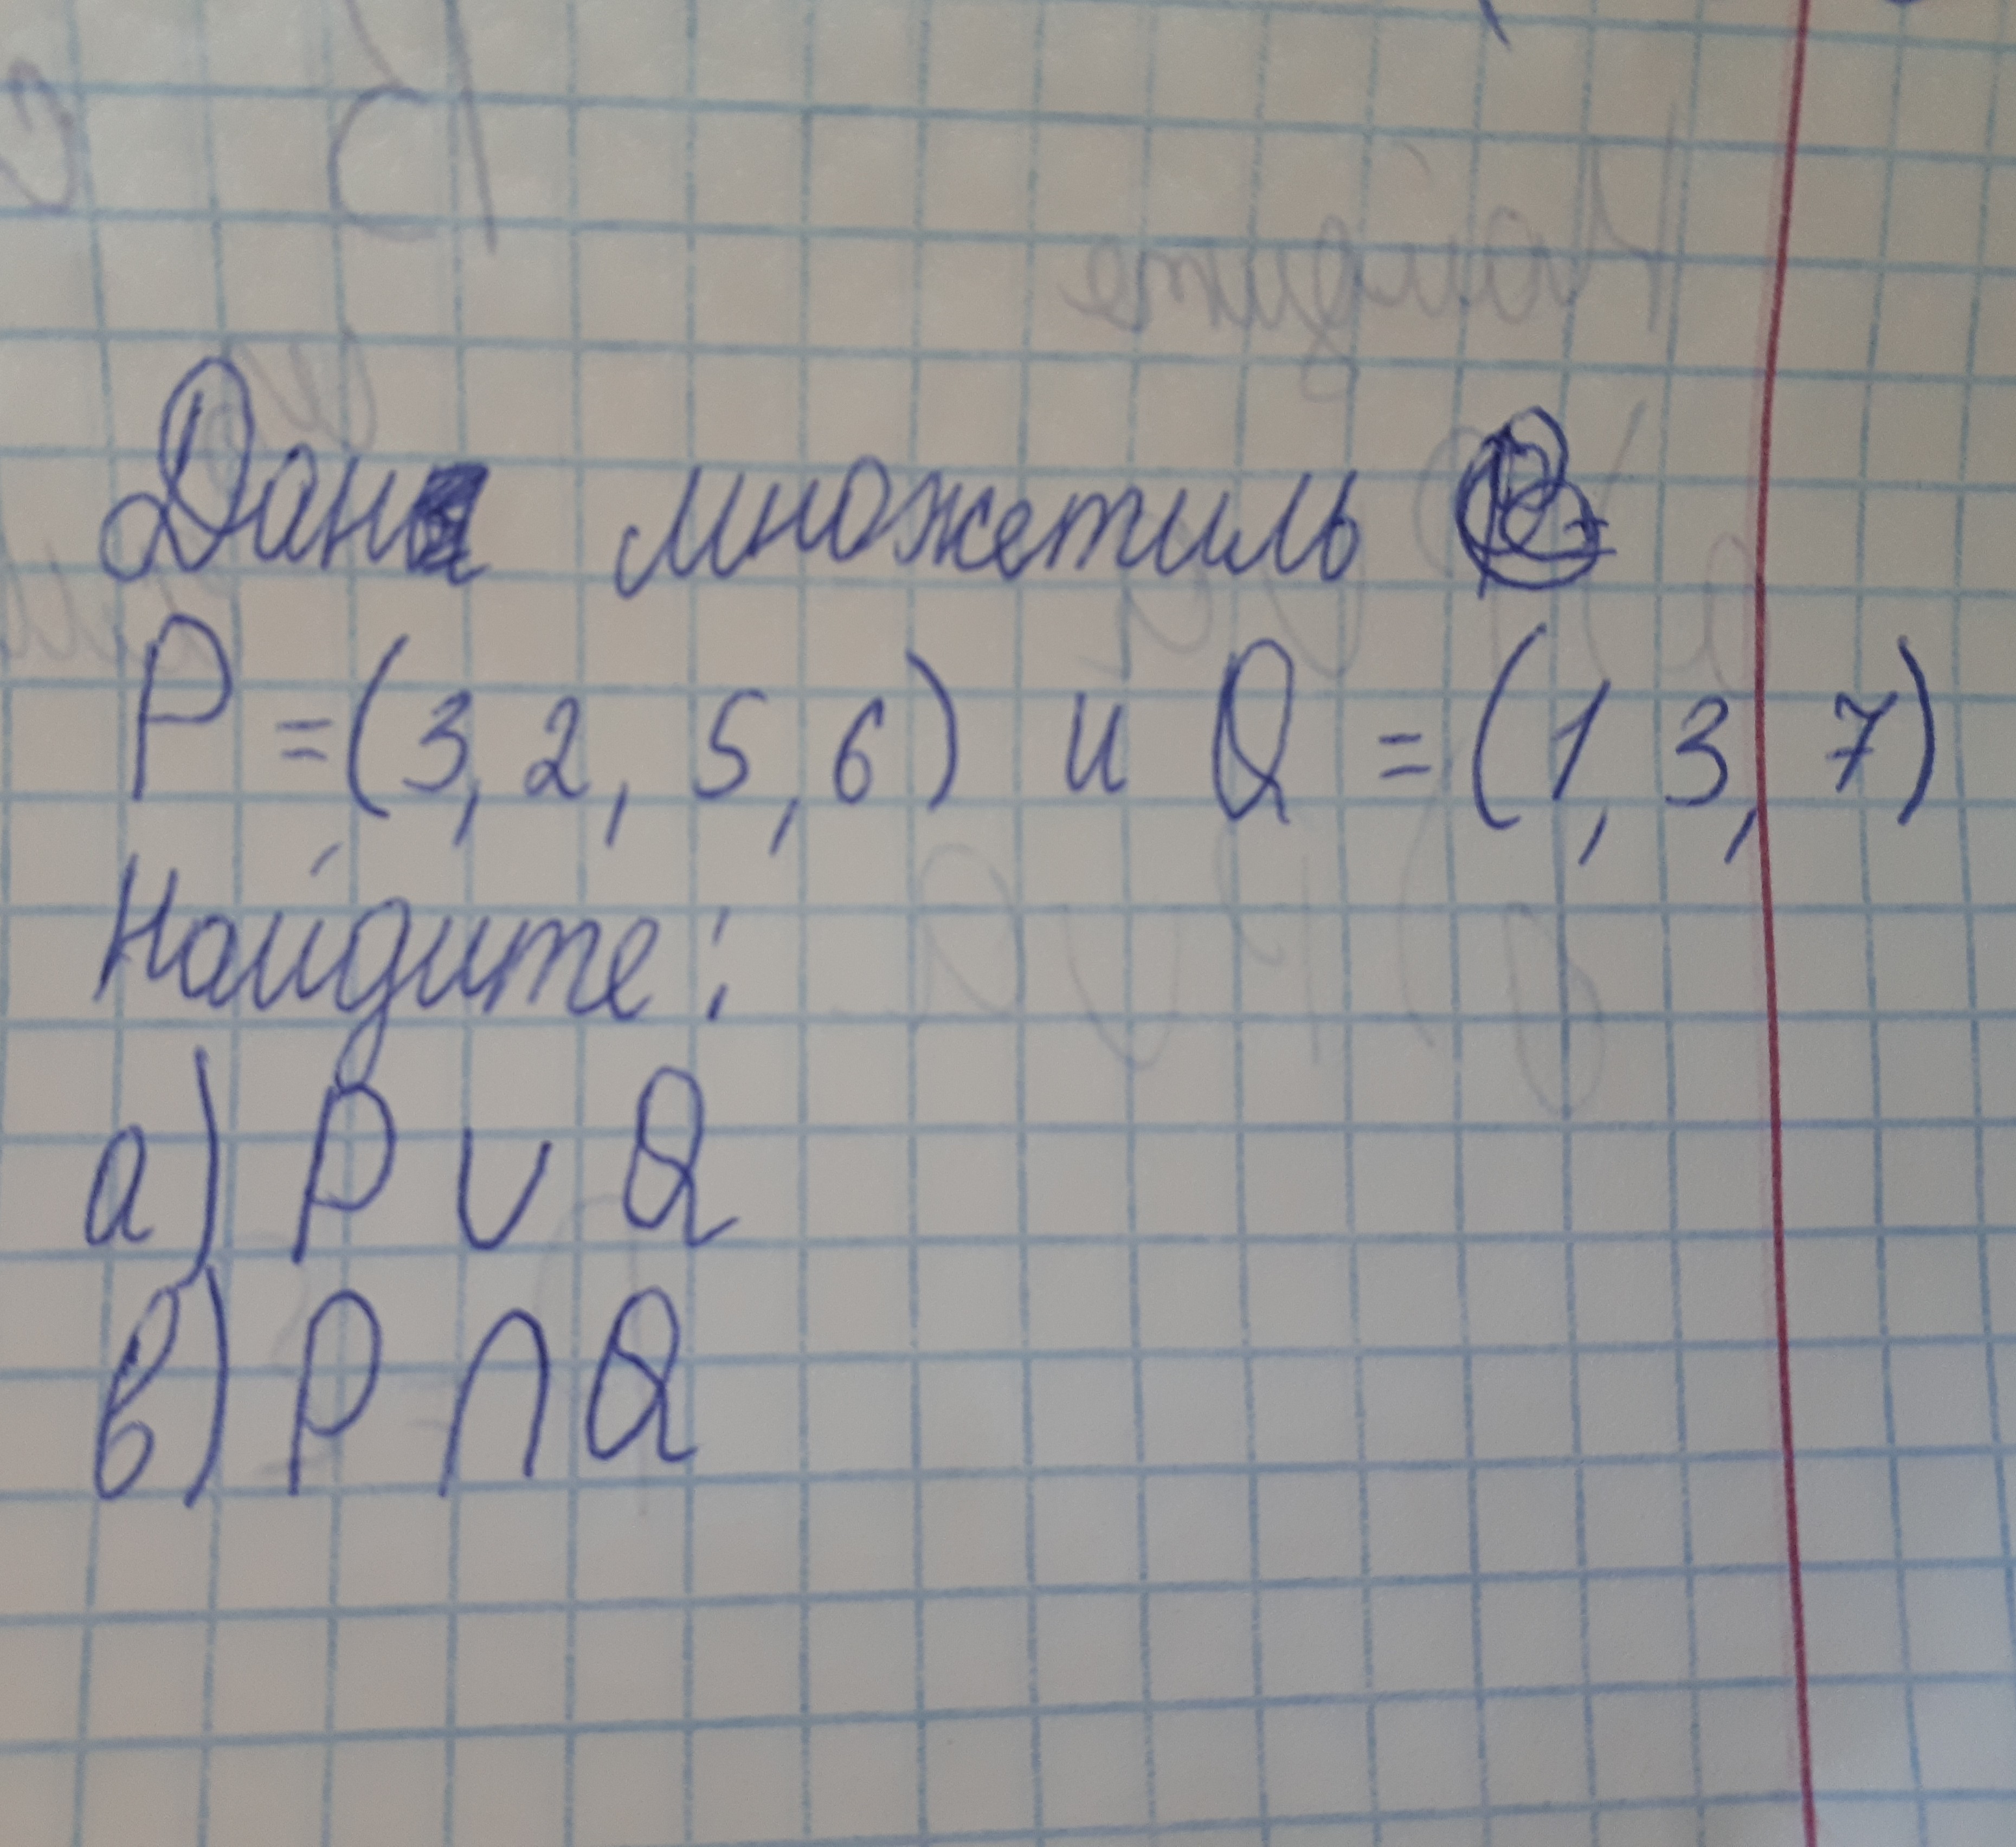 Дана множетиль
P = (3, 2, 5, 6) и Q = (1, 3, 7)
Найдите:
а) P ∪ Q
в) P ∩ Q